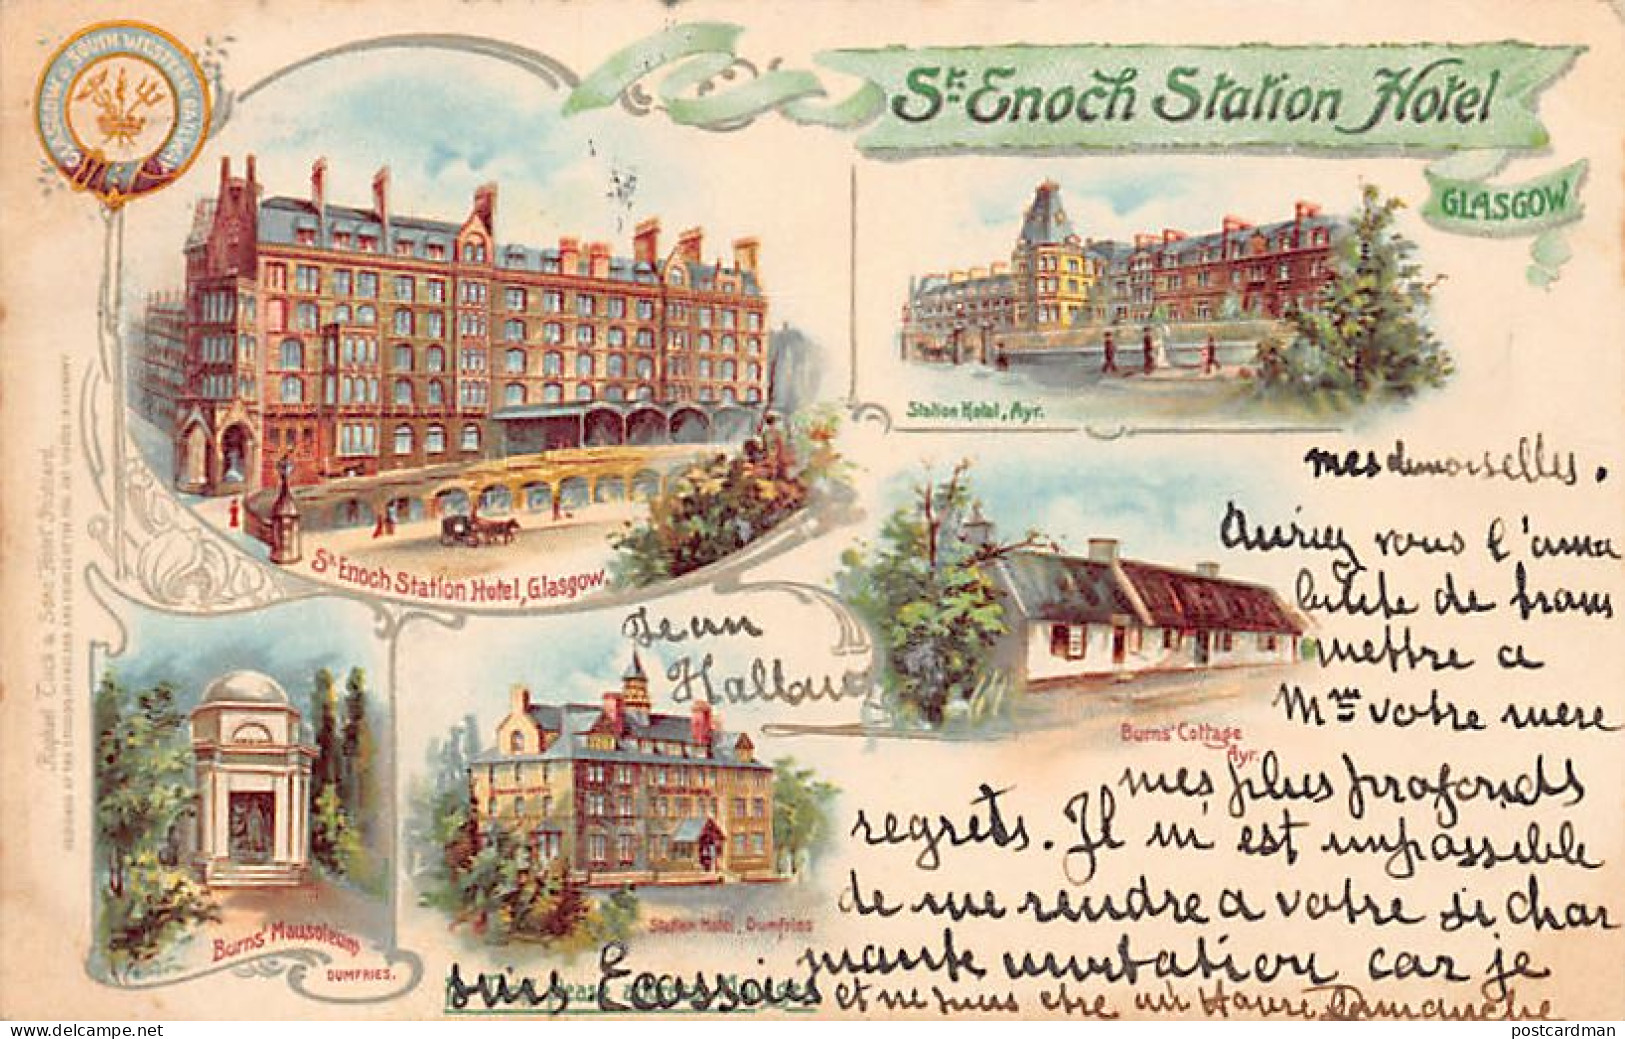 GLASGOW & SOUTH WESTERN RAILWAY
St. Enoch Station Hotel
GLASGOW
St. Enoch Station Hotel, Glasgow.
Station Hotel, Ayr.
Burns' Cottage
Ayr.
Burns' Mausoleum
DUMFRIES.
Station Hotel, Dumfries
Raphael Tuck & Sons
Jean
mesdemoiselles.
Auriez vous l'ama
bilité de trans
mettre a
Mme votre mere
mes plus profonds
regrets. Il m'est impossible
de me rendre a votre si char
mante invitation car je
suis Ecossais et ne puis etre au Havre Dimanche
delcampe.net
postcardman